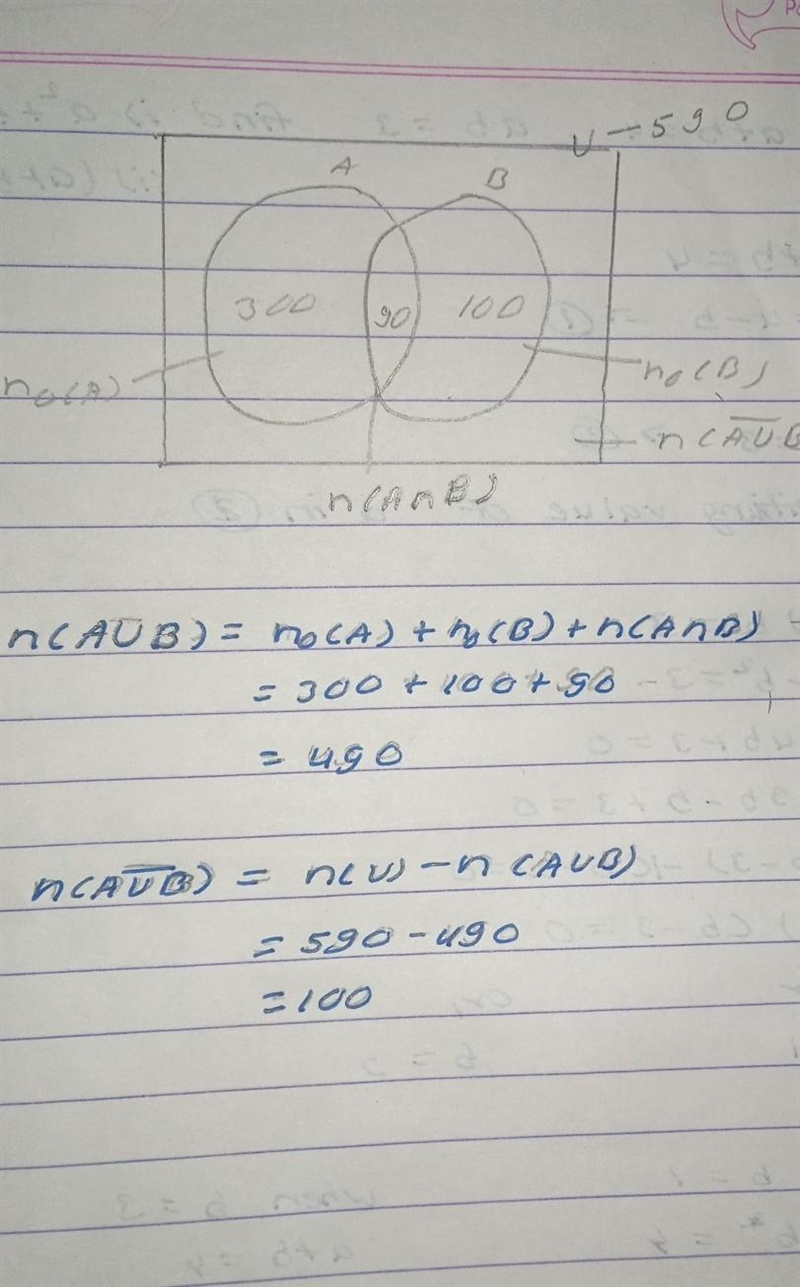 U - 590
A B
300 90 100
n₀(A) n₀(B)
n(A̅U̅B̅
n(AnB)
n(AUB) = n₀(A) + n₀(B) + n(AnB)
= 300 + 100 + 90
= 490
n(A̅U̅B̅) = n(U) - n(AUB)
= 590 - 490
= 100